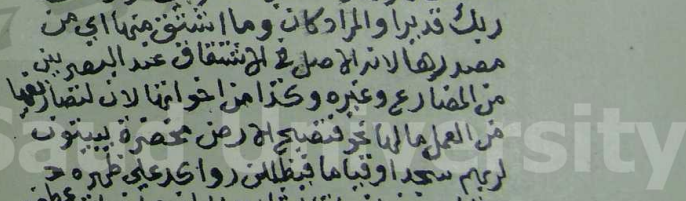 ربك قديرا والمراد كان وما اشتق منها اي من
مصدرها لانه الاصل في الاشتقاق عند البصريين
من المضارع وغيره وكذا من اخواتها لان لتصاريفها
من العمل ما لها نحو فتصبح الارض مخضرة يبيتون
لربهم سجدا وقياما فيظللن رواكد على ظهره